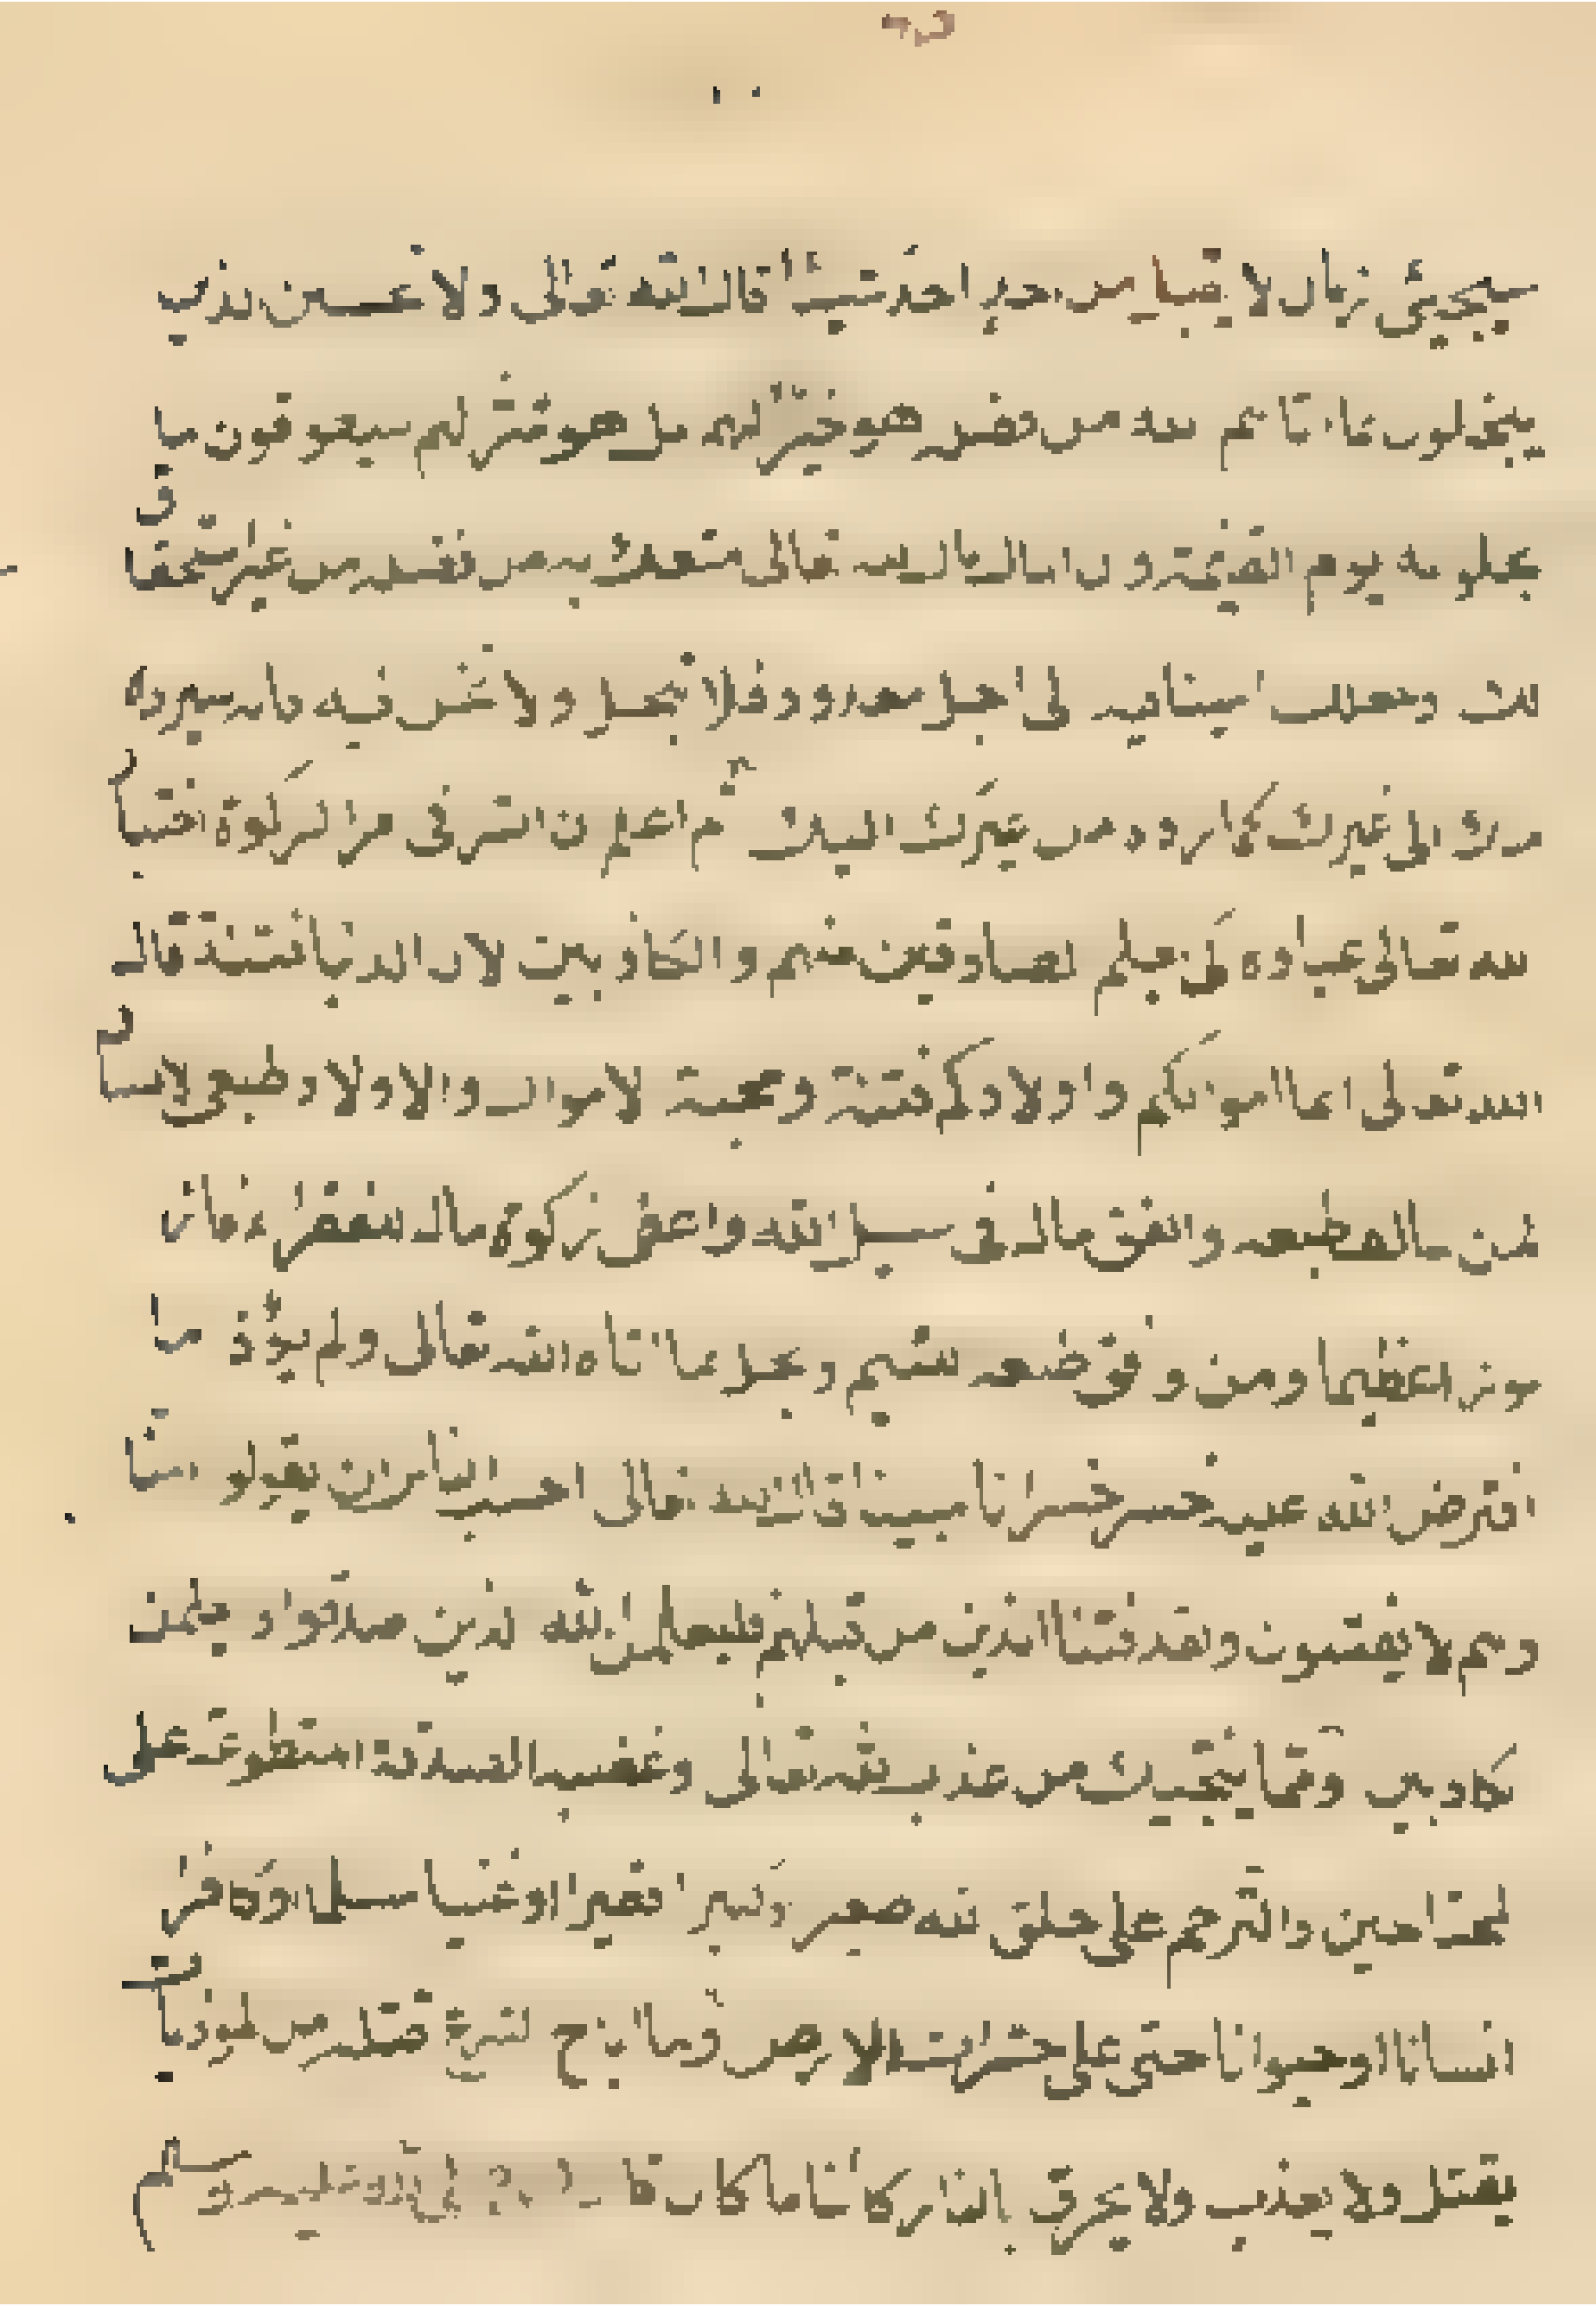 سيجيئ زمان لا يقبل من احد احد شيئا قال الله تعالى ولا تحسبن الذين
يبخلون بما اتاهم الله من فضله هو خير لهم بل هو شر لهم سيطوقون ما
بخلوا به يوم القيمة وان المال مال الله تعالى متعك به من فضله من غير استحقاق
لك وجعلك امينا فيه الى اجل معدود فلا تبخل ولا تخن فيه فانه سيرده
منك الى غيرك كما رده من غيرك اليك ثم اعلم ان السر في امر الزكوة اختبار
الله تعالى عباده لكي يعلم الصادقين منهم والكاذبين لان الدنيا فتنة قال
الله تعالى انما اموالكم واولادكم فتنة ومحبة الاموال والاولاد طبعي لانسان
فمن خالف طبعه وانفق ماله في سبيل الله واعطى زكوة ماله للفقراء فاز
فوزا عظيما ومن وافق طبعه الشيم وبخل بما اتاه الله تعالى ولم يؤد ما
افترض الله عليه خسر خسرانا مبينا قال الله تعالى احسب الناس ان يقولوا امنا
وهم لا يفتنون ولقد فتنا الذين من قبلهم فليعلمن الله الذين صدقوا وليعلمن
الكاذبين ومما ينجيك من عذاب الله تعالى وغضبه الصدقة المتطوعة على
المحتاجين والترحم على خلق الله صغيرا وكبيرا فقيرا او غنيا مسلما او كافرا
انسانا او حيوانا حتى على حشرات الارض وما اباح الشرع قتله من الموذيات
يقتل ولا يعذب ولا يحرق بالنار كائنا ما كان قال صلى الله عليه وسلم